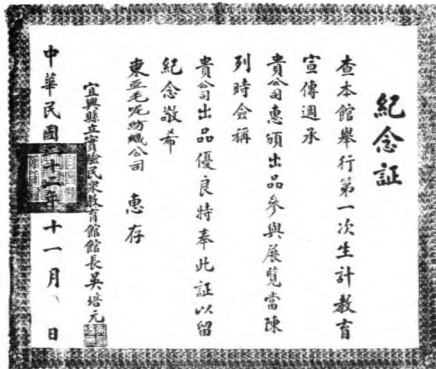 紀念証
查本館舉行第一次生計教育
宣傳週承
貴公司惠頒出品參與展覽當陳
列時僉稱
貴公司出品優良特奉此証以留
紀念敬希
東亞毛呢紡織公司 惠存
宜興縣立實驗民衆教育館館長吳培元
中華民國二十二年十一月 日